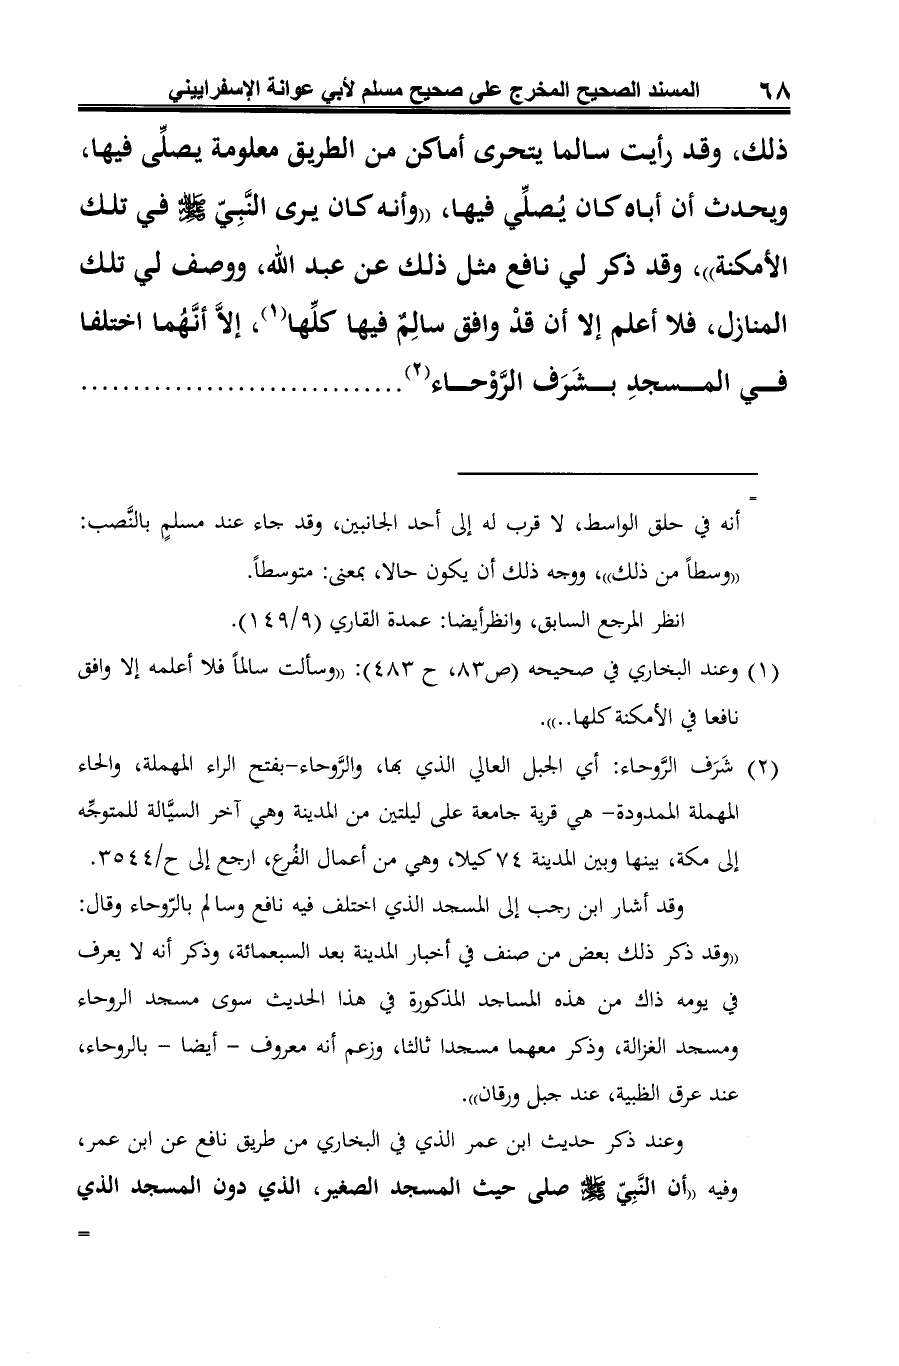 ٦٨ المسند الصحيح المخرج على صحيح مسلم لأبي عوانة الإسفراييني
ذلك، وقد رأيت سالما يتحرى أماكن من الطريق معلومة يصلِّى فيها،
ويحدث أن أباه كان يُصلِّي فيها، ((وأنه كان يرى النَّبِيّ ﷺ في تلك
الأمكنة))، وقد ذكر لي نافع مثل ذلك عن عبد الله، ووصف لي تلك
المنازل، فلا أعلم إلا أن قدْ وافق سالِمٌ فيها كلِّها(١)، إلاَّ أنَّهُما اختلفا
فــي المــسجدِ بــشَرَف الرَّوْحــاء(٢)...............................
=
أنه في حلق الواسط، لا قرب له إلى أحد الجانبين، وقد جاء عند مسلمٍ بالنَّصب:
((وسطاً من ذلك))، ووجه ذلك أن يكون حالا، بمعنى: متوسطاً.
انظر المرجع السابق، وانظرأيضا: عمدة القاري (١٤٩/٩).
(١) وعند البخاري في صحيحه (ص٨٣، ح ٤٨٣): ((وسألت سالماً فلا أعلمه إلا وافق
نافعا في الأمكنة كلها..)).
(٢) شَرَف الرَّوحاء: أي الجبل العالي الذي بها، والرَّوحاء-بفتح الراء المهملة، والحاء
المهملة الممدودة- هي قرية جامعة على ليلتين من المدينة وهي آخر السيَّالة للمتوجِّه
إلى مكة، بينها وبين المدينة ٧٤ كيلا، وهي من أعمال الفُرع، ارجع إلى ح/٣٥٤٤.
وقد أشار ابن رجب إلى المسجد الذي اختلف فيه نافع وسالم بالرّوحاء وقال:
((وقد ذكر ذلك بعض من صنف في أخبار المدينة بعد السبعمائة، وذكر أنه لا يعرف
في يومه ذاك من هذه المساجد المذكورة في هذا الحديث سوى مسجد الروحاء
ومسجد الغزالة، وذكر معهما مسجدا ثالثا، وزعم أنه معروف - أيضا - بالروحاء،
عند عرق الظبية، عند جبل ورقان)).
وعند ذكر حديث ابن عمر الذي في البخاري من طريق نافع عن ابن عمر،
وفيه ((أن النَّبِيّ ﷺ صلى حيث المسجد الصغير، الذي دون المسجد الذي
=